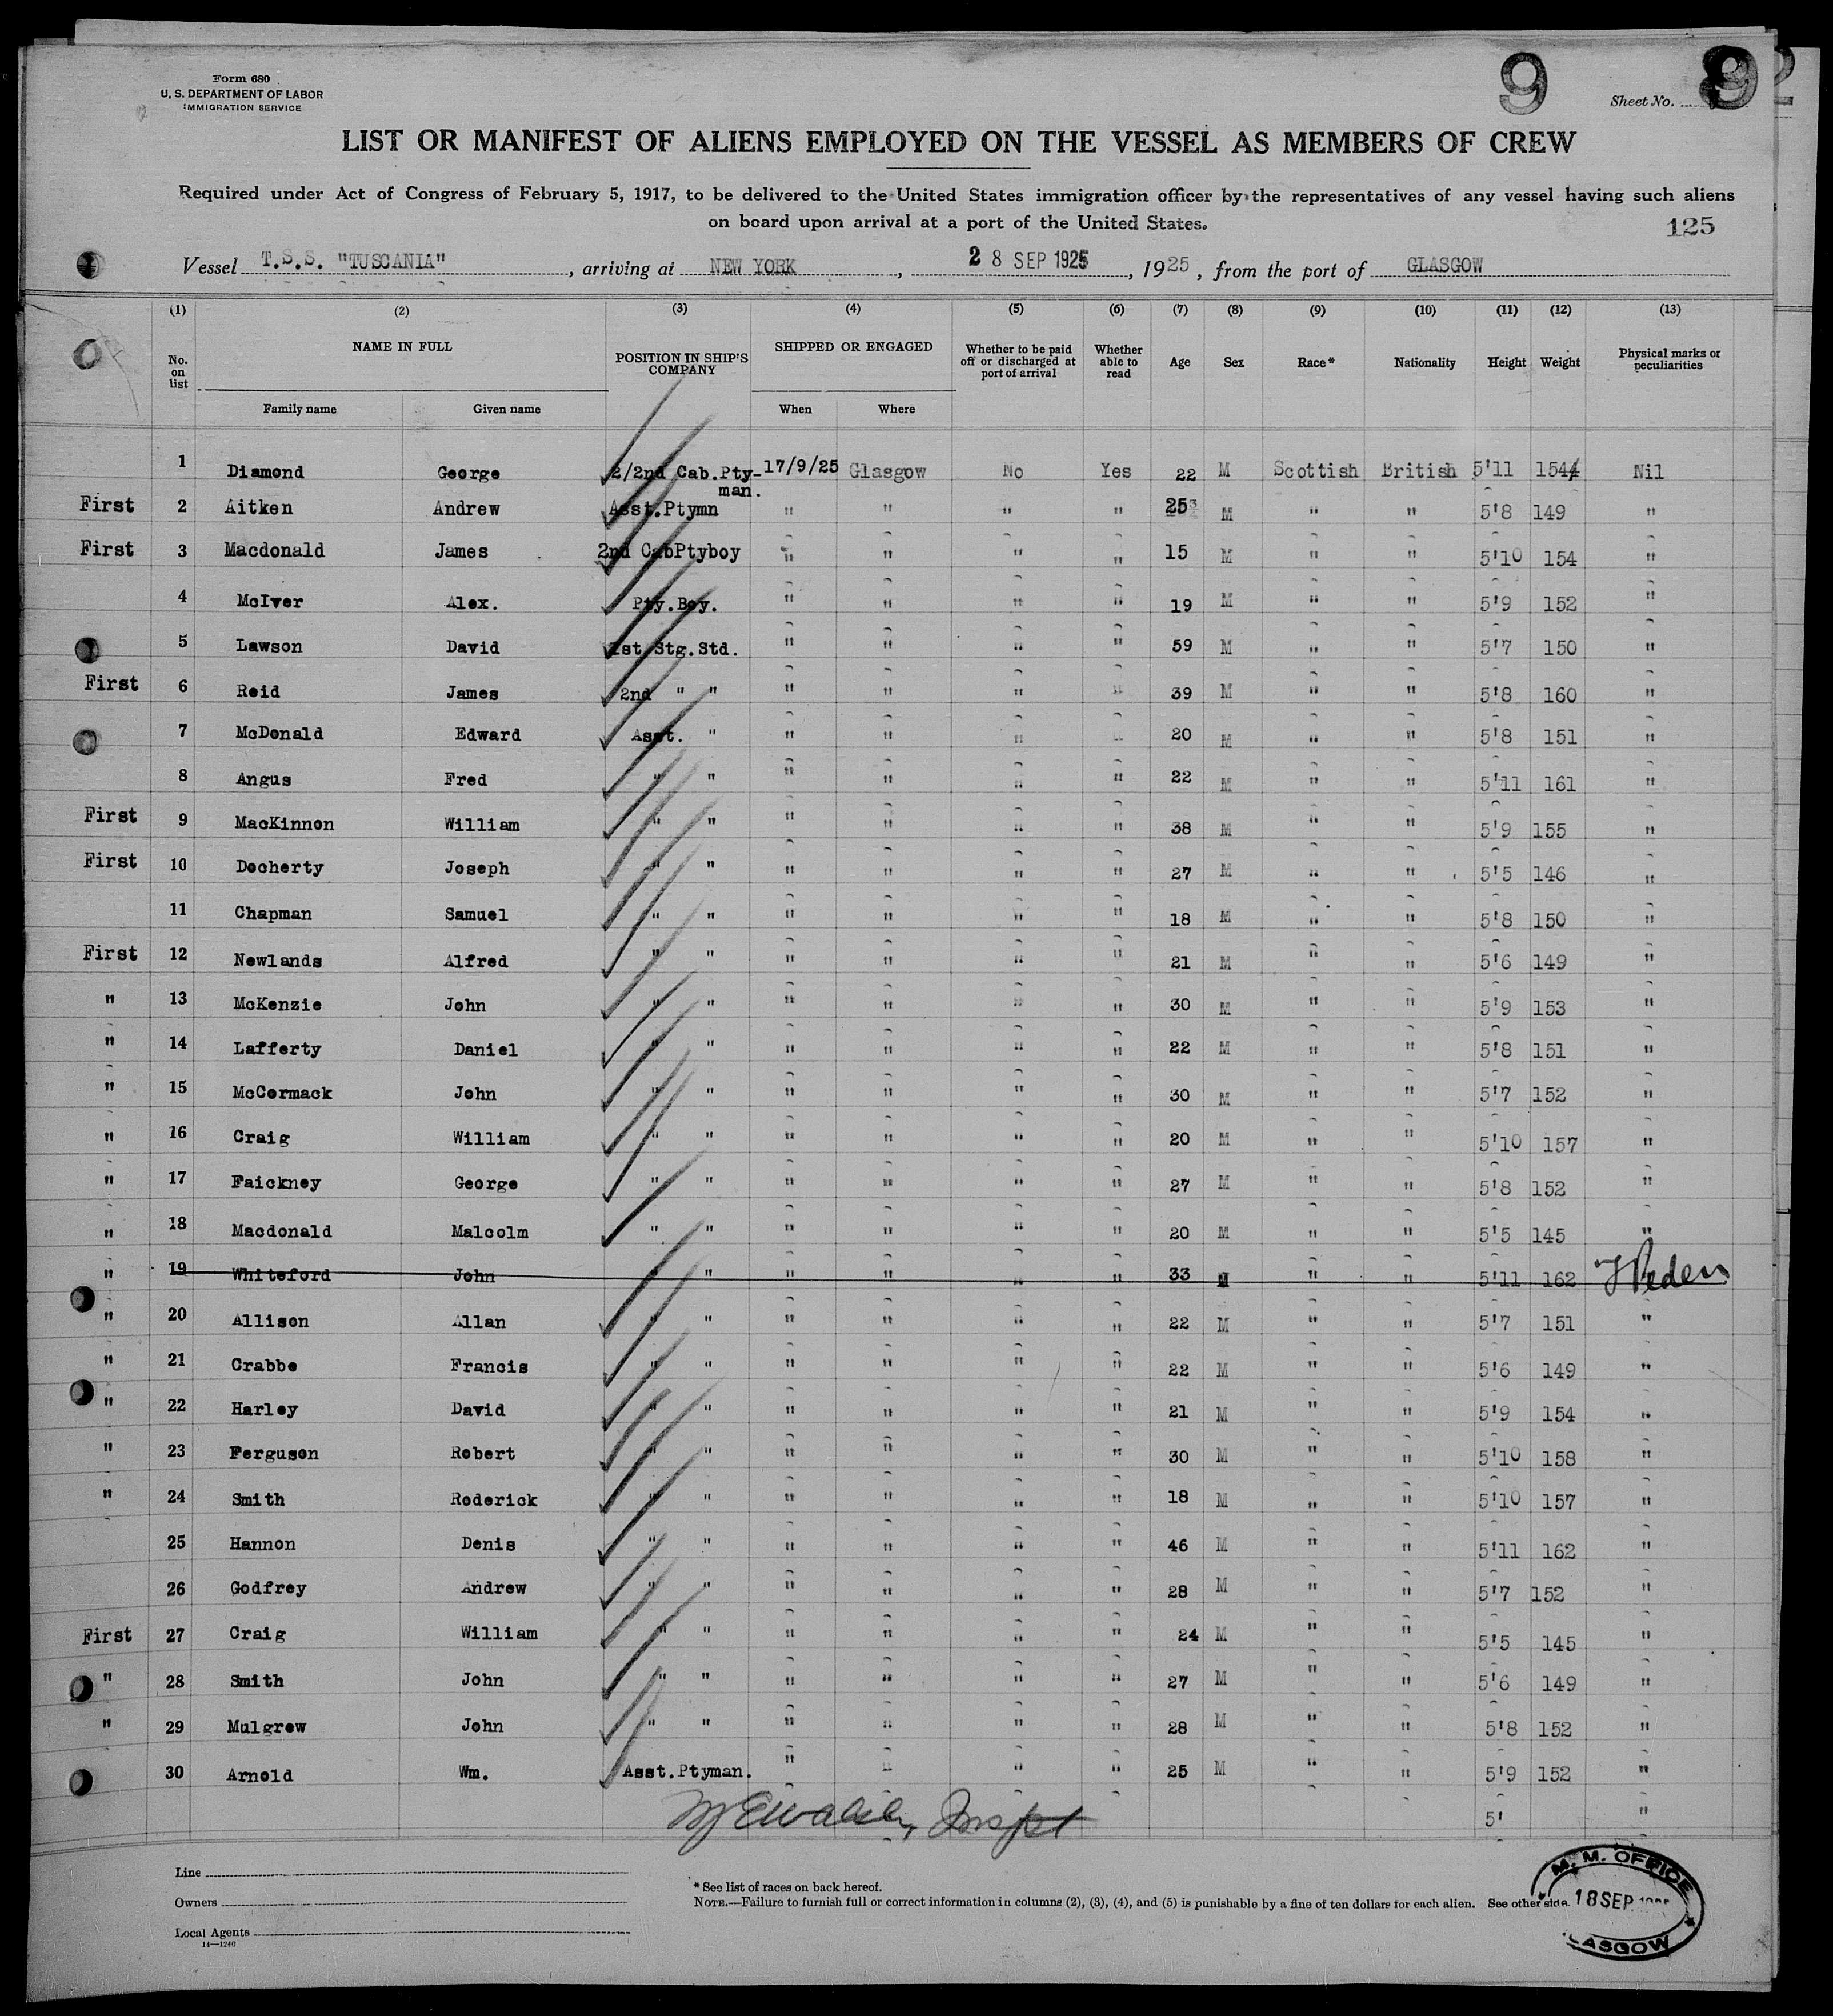 Form 680
U. S. DEPARTMENT OF LABOR
IMMIGRATION SERVICE
9
Sheet No.
LIST OR MANIFEST OF ALIENS EMPLOYED ON THE VESSEL AS MEMBERS OF CREW
Required under Act of Congress of February 5, 1917, to be delivered to the United States immigration officer by the representatives of any vessel having such aliens
on board upon arrival at a port of the United States.
125
Vessel T.S.S. "TUSCANIA", arriving at NEW YORK, 28 SEP 1925, 1925, from the port of GLASGOW
(1) (2) (3) (4) (5) (6) (7) (8) (9) (10) (11) (12) (13)
No. on list NAME IN FULL POSITION IN SHIP'S COMPANY SHIPPED OR ENGAGED Whether to be paid off or discharged at port of arrival Whether able to read Age Sex Race* Nationality Height Weight Physical marks or peculiarities
Family name Given name When Where
1 Diamond George 2/2nd Cab.Pty-man. 17/9/25 Glasgow No Yes 22 M Scottish British 5'11 154 Nil
First 2 Aitken Andrew Asst.Ptymn " " " " 25 M " " 5'8 149 "
First 3 Macdonald James 2nd CabPtyboy " " " " 15 M " " 5'10 154 "
4 McIver Alex. Pty.Boy. " " " " 19 M " " 5'9 152 "
5 Lawson David 1st Stg.Std. " " " " 59 M " " 5'7 150 "
First 6 Reid James 2nd " " " " " " 39 M " " 5'8 160 "
7 McDonald Edward Asst. " " " " " 20 M " " 5'8 151 "
8 Angus Fred " " " " " " 22 M " " 5'11 161 "
First 9 MacKinnon William " " " " " " 38 M " " 5'9 155 "
First 10 Docherty Joseph " " " " " " 27 M " " 5'5 146 "
11 Chapman Samuel " " " " " " 18 M " " 5'8 150 "
First 12 Newlands Alfred " " " " " " 21 M " " 5'6 149 "
" 13 McKenzie John " " " " " " 30 M " " 5'9 153 "
" 14 Lafferty Daniel " " " " " " 22 M " " 5'8 151 "
" 15 McCormack John " " " " " " 30 M " " 5'7 152 "
" 16 Craig William " " " " " " 20 M " " 5'10 157 "
" 17 Faickney George " " " " " " 27 M " " 5'8 152 "
" 18 Macdonald Malcolm " " " " " " 20 M " " 5'5 145 "
" 19 Whiteford John " " " " " " 33 M " " 5'11 162 "
" 20 Allison Allan " " " " " " 22 M " " 5'7 151 "
" 21 Crabbe Francis " " " " " " 22 M " " 5'6 149 "
" 22 Harley David " " " " " " 21 M " " 5'9 154 "
" 23 Ferguson Robert " " " " " " 30 M " " 5'10 158 "
" 24 Smith Roderick " " " " " " 18 M " " 5'10 157 "
25 Hannon Denis " " " " " " 46 M " " 5'11 162 "
26 Godfrey Andrew " " " " " " 28 M " " 5'7 152 "
First 27 Craig William " " " " " " 24 M " " 5'5 145 "
" 28 Smith John " " " " " " 27 M " " 5'6 149 "
" 29 Mulgrew John " " " " " " 28 M " " 5'8 152 "
30 Arnold Wm. Asst.Ptyman. " " " " 25 M " " 5'9 152 "
5' "
Line
Owners
Local Agents
14—1240
* See list of races on back hereof.
NOTE.—Failure to furnish full or correct information in columns (2), (3), (4), and (5) is punishable by a fine of ten dollars for each alien. See other side.
M. M. OFFICE
18 SEP
GLASGOW